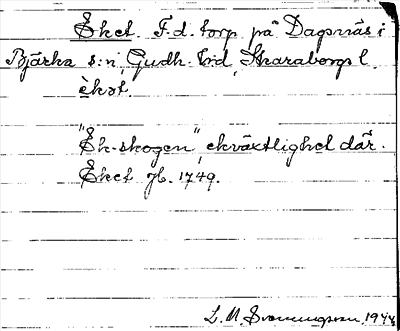 Eket. F.d. torp på Dagsnäs i
Bjärka s:n, Gudh. hrd, Skaraborgs l.
èkət.
"Ek-skogen", ekväxtlighet där.
Eket jb. 1749.
L. M. Svenningsson, 1944